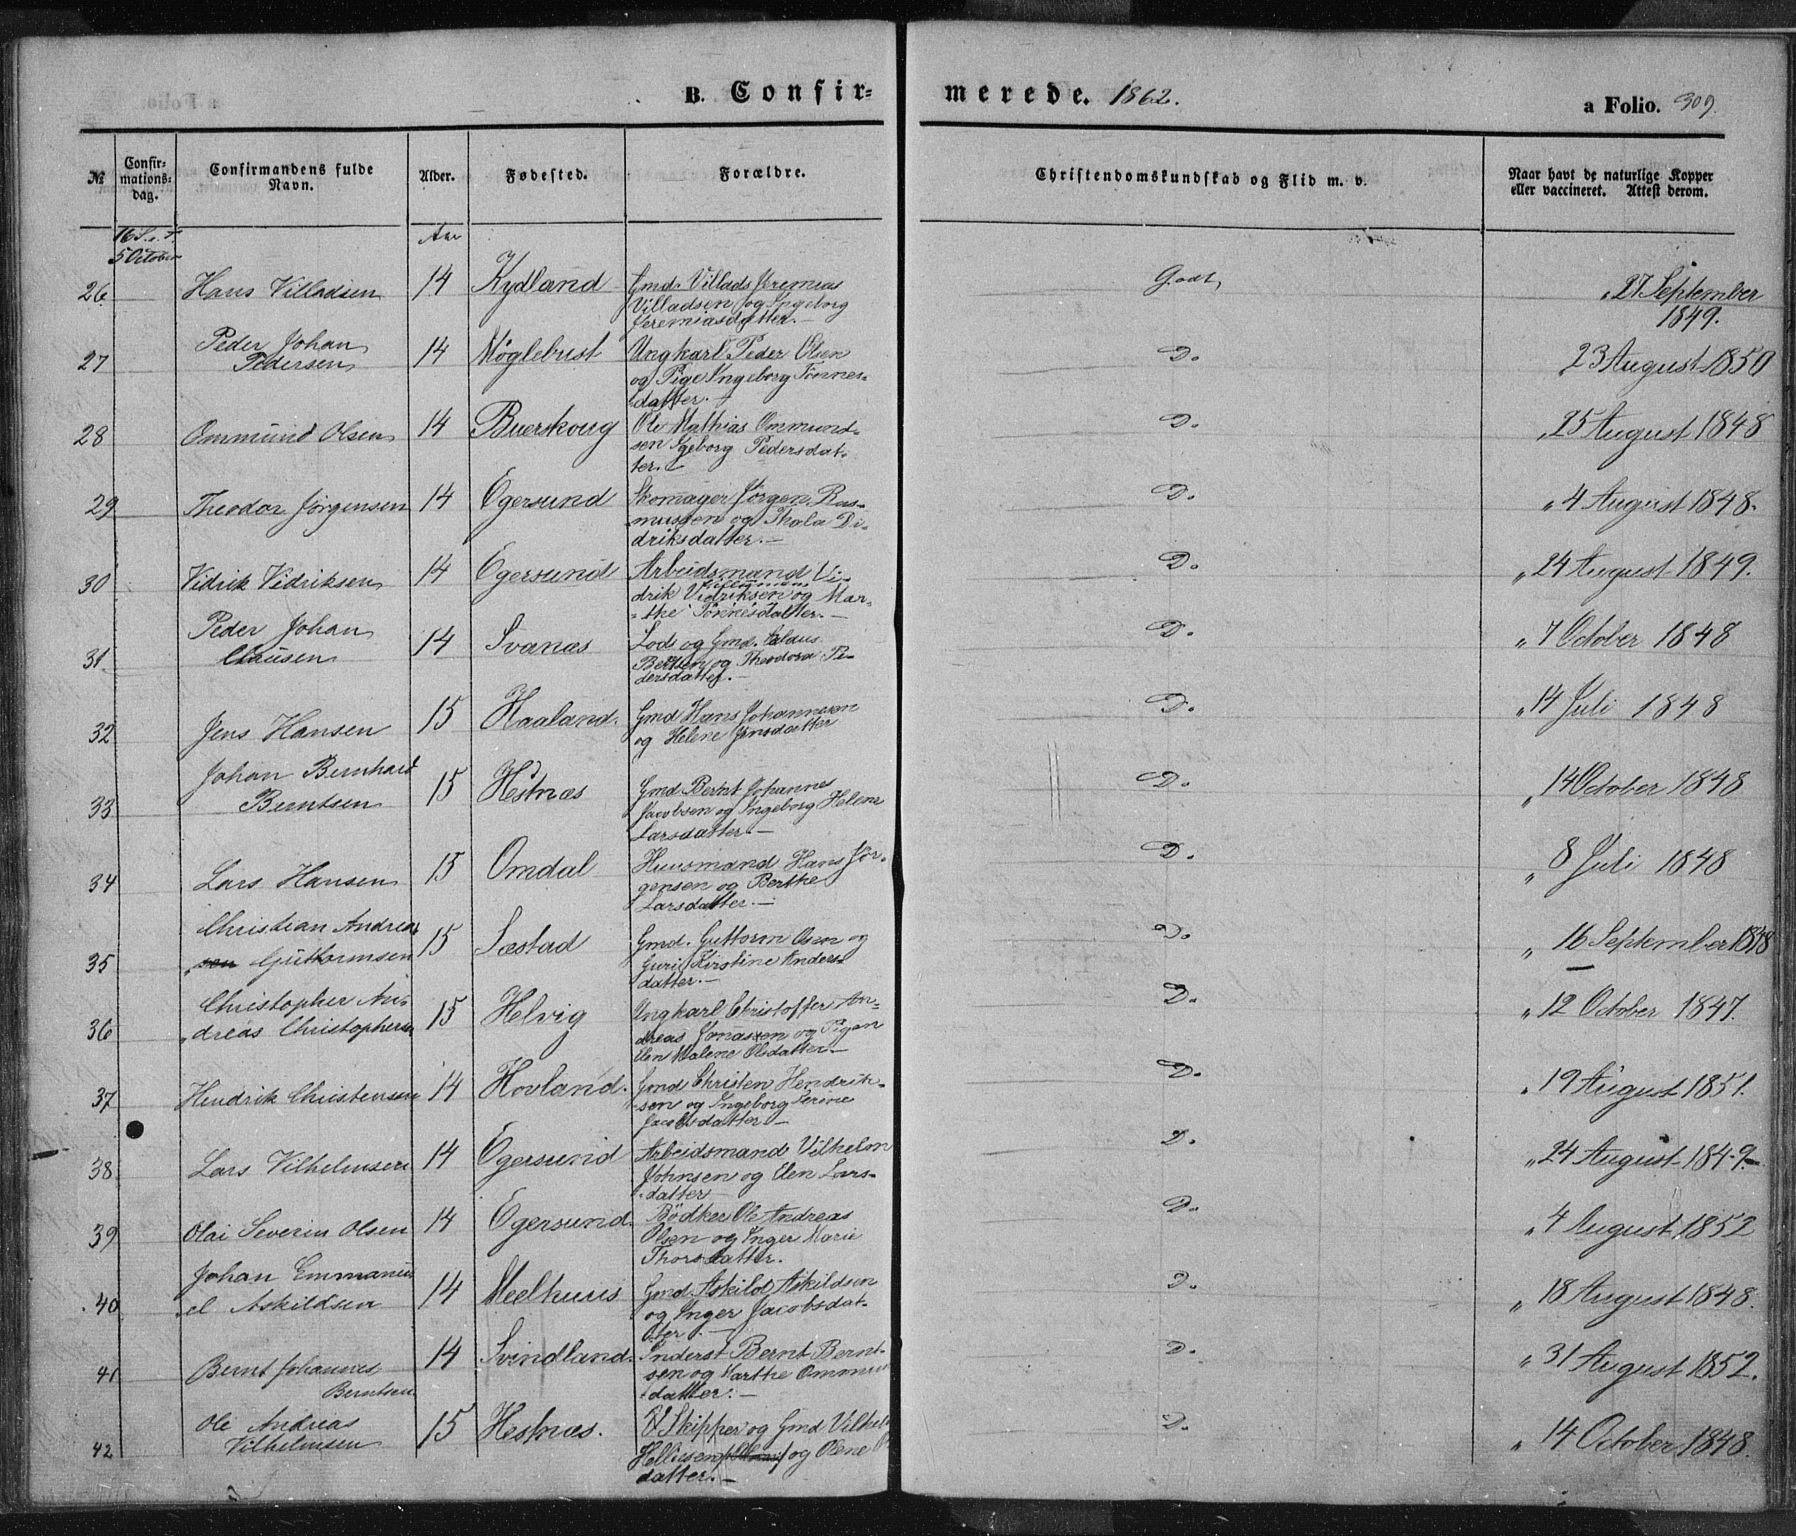 B. Confirmerede. 1862.
a Folio. 309.
№
Confirmationsdag.
Confirmandens fulde Navn.
Alder.
Fødested.
Forældre.
Christendomskundskab og Flid m. v.
Naar havt de naturlige Kopper eller vaccineret. Attest derom.
16 S. e. T.
5 October
Aar
26 Hans Villadsen 14 Kydland Gmd. Villads Jeremias Villadsen og Ingeborg Jeremiasdatter.— Godt, „27 September 1849.
27 Peder Johan Pedersen 14 Møglebust Ungkarl Peder Olsen og Pige Ingeborg Tønnesdatter.— D. 23 August 1850
28 Ommund Olsen 14 Buerskoug Ole Mathias Ommundsen Igeborg Pedersdatter. D. „25 August 1848
29 Theodor Jørgensen 14 Egersund Skomager Jørgen Rasmussen og Thala Didriksdatter.— D. „4 August 1848.
30 Vidrik Vidriksen 14 Egersund Arbeidsmand Vidrik Vidriksen og Marthe Tønnesdatter.— D. „24 August 1849.
31 Peder Johan Clausen 14 Svanæs Lods og Gmd. Claus Bertsen og Theodora Pedersdatter.— D. „7 October 1848
32 Jens Hansen 15 Haaland. Gmd Hans Johannesen og Helene Jensdatter D. „14 Juli 1848
33 Johan Bernhard Berntsen 15 Hestnæs Gmd Bernt Johannes Jacobsen og Ingeborg Helene Larsdatter.— D. „14 October 1848
34 Lars Hansen 15 Omdal Huusmand Hans Jørgensen og Berthe Larsdatter.— D. „8 Juli 1848
35 Christian Andreas Guttormsen 15 Sæstad Gmd. Guttorm Olsen og Guri Kirstine Andersdatter.— D. „16 September 1848
36 Christopher Andreas Christophersen 15 Helvig Ungkarl Christoffer Andreas Jonassen og Pigen Elen Malene Olsdatter.— D. „12 October 1847.
37 Hendrik Christensen 14 Hovland. Gmd Christen Hendriksen og Ingeborg Serine Jacobsdatter— D. „19 August 1851.
38 Lars Vilhelmsen 14 Egersund Arbeidsmand Vilhelm Johnsen og Elen Larsdatter— D. „24 August 1849.—
39 Olai Severin Olsen 14 Egersund. Bødker Ole Andreas Olsen og Inger Marie Thorsdatter. D. „4 August 1852
40 Johan Emmanuel Askildsen 14 Meelhuus Gmd. Askild Askildsen og Inger Jacobsdatter.— D. „18 August 1848.
41 Bernt Johannes Berntsen 14 Svindland. Inderst Bernt Berntsen og Marthe Ommunsdatter.— D. „31 August 1852.
42 Ole Andreas Vilhelmsen 15 Hestnæs. Skipper og Gmd Vilhelm Helliesen og Olene datter.— D. „14 October 1848.